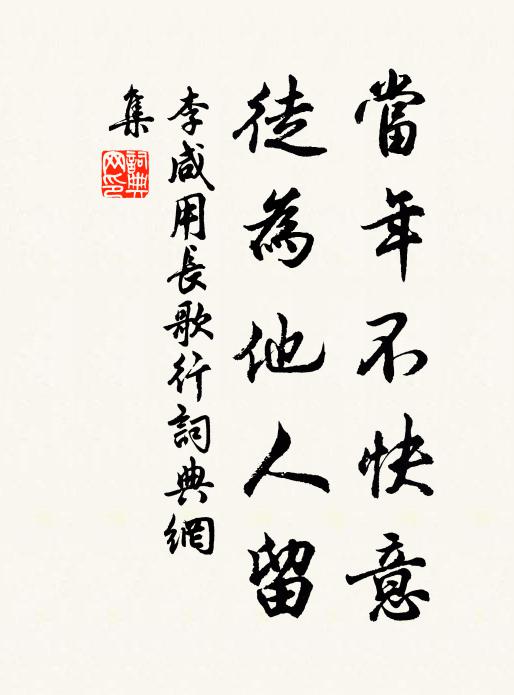 當年不快意
徒為他人留
李咸用長歌行詞典網
集
詞典
网印